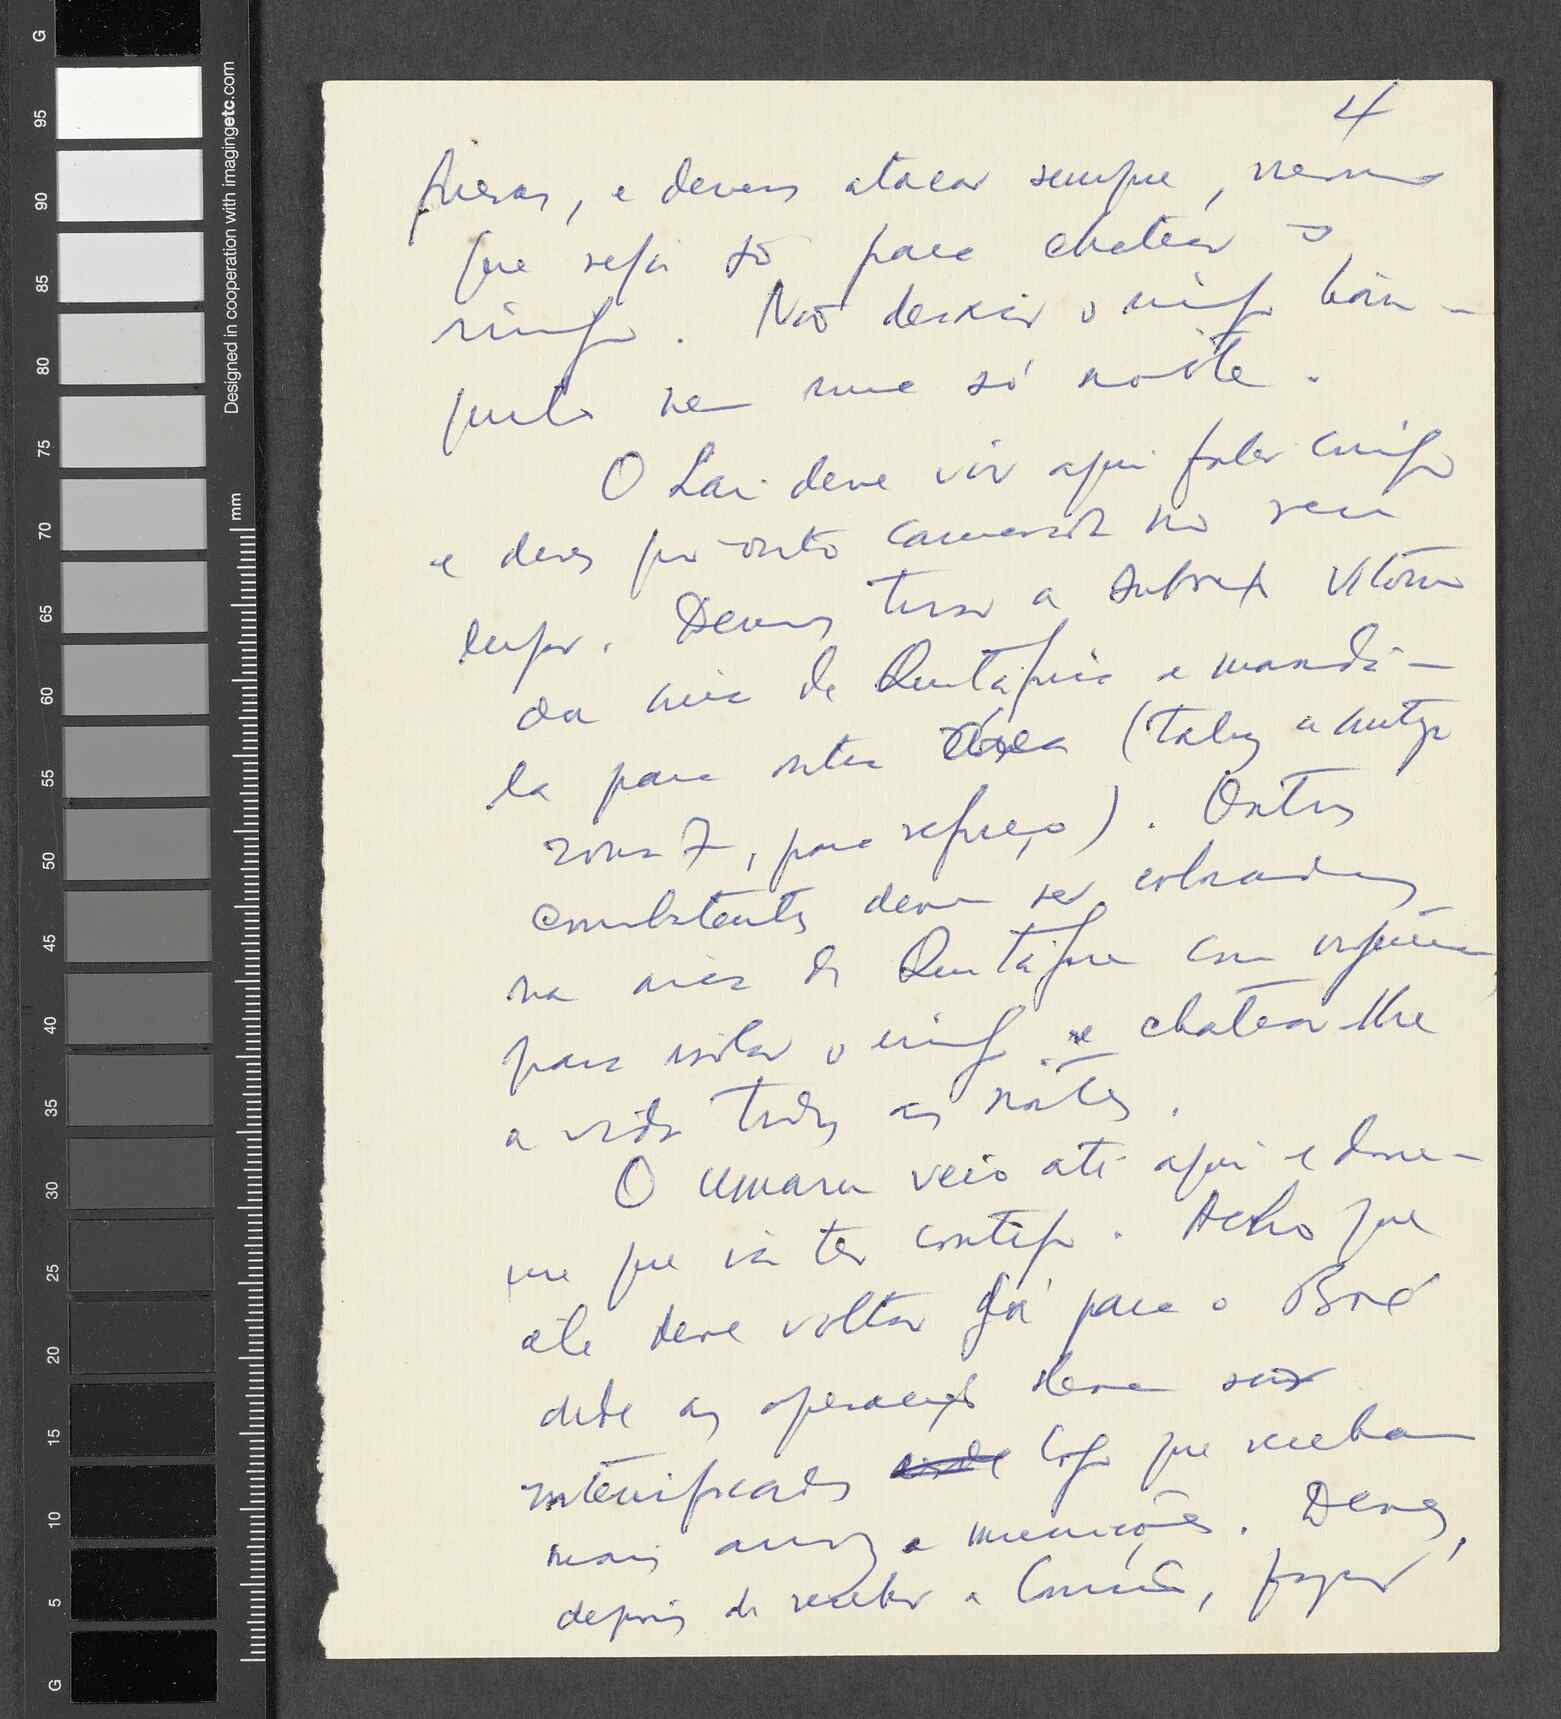 4
fueras, e devem atacar sempre, mesmo
que seja só para chatear o
inimigo. Não deixar o inimigo tran-
quilo nem uma só noite.
O Lai deve vir aqui falar comigo
e deves por-
lugar. Devemos tirar a Vitorino
da área de Quintáfine e mandá-
la para outra área (talvez a antiga
zona 7, para reforço). Outros
combatentes devem ser colocados
na área de Quintáfine com
para isolar o inimigo e chatear-lhe
a vida todas as noites.
O Umaru veio até aqui e
me que vá ter contigo. Acho que
ele deve voltar já para o Boé
onde as operações devem ser
intensificadas logo que recebam
mais armas e munições. Deves,
depois de receber o fazer
G
95
90
85
80
75
70
65
60
55
50
45
40
35
30
25
20
15
10
5
G
mm
Designed in cooperation with imagingetc.com